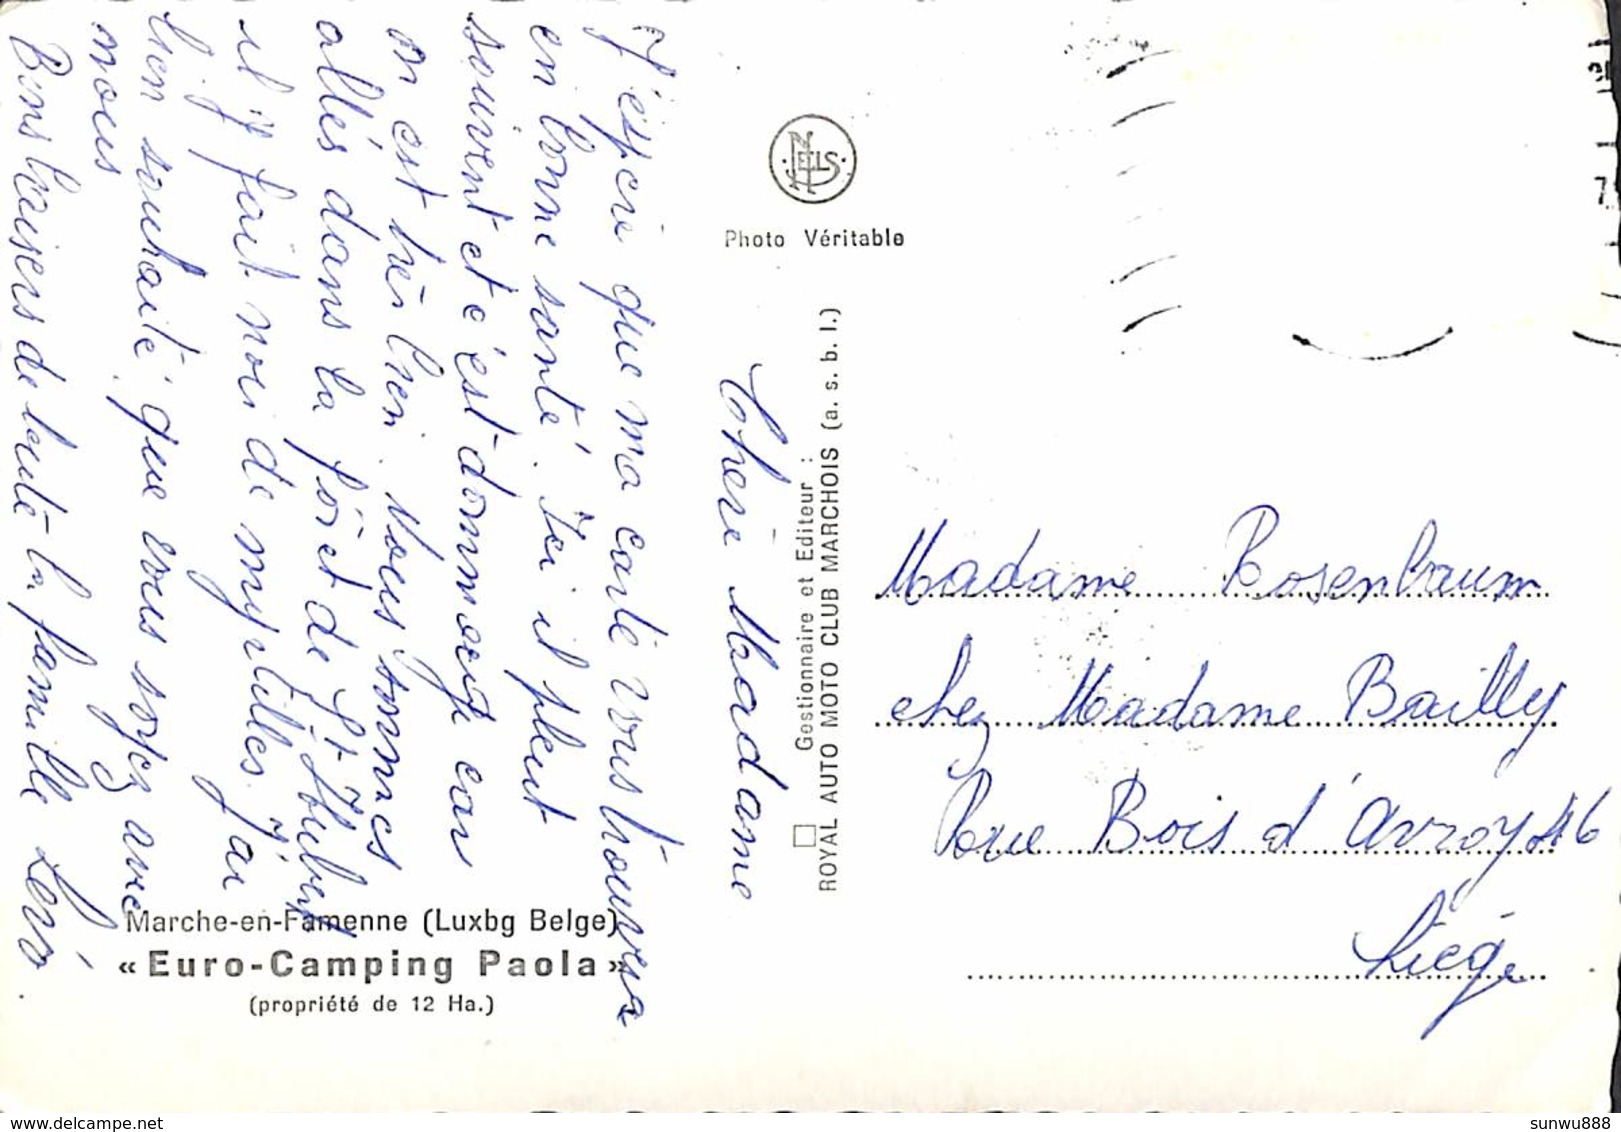 Chere Madame
J'espère que ma carte vous trouvera
en bonne santé. Ici il pleut
souvent et c'est dommage car
on est très bien. Nous sommes
allés dans la forêt de St Hubert
il y fait noir de myrtilles. J'ai
bien souhaité que vous soyez avec
nous
Bons baisers de toute la famille
NELS
Photo Véritable
Gestionnaire et Editeur :
ROYAL AUTO MOTO CLUB MARCHOIS (a. s. b. l.)
Madame Rosenbaum
chez Madame Bailly
Rue Bois d'Avroy 46
Liège
Marche-en-Famenne (Luxbg Belge)
« Euro-Camping Paola »
(propriété de 12 Ha.)
sunwu888